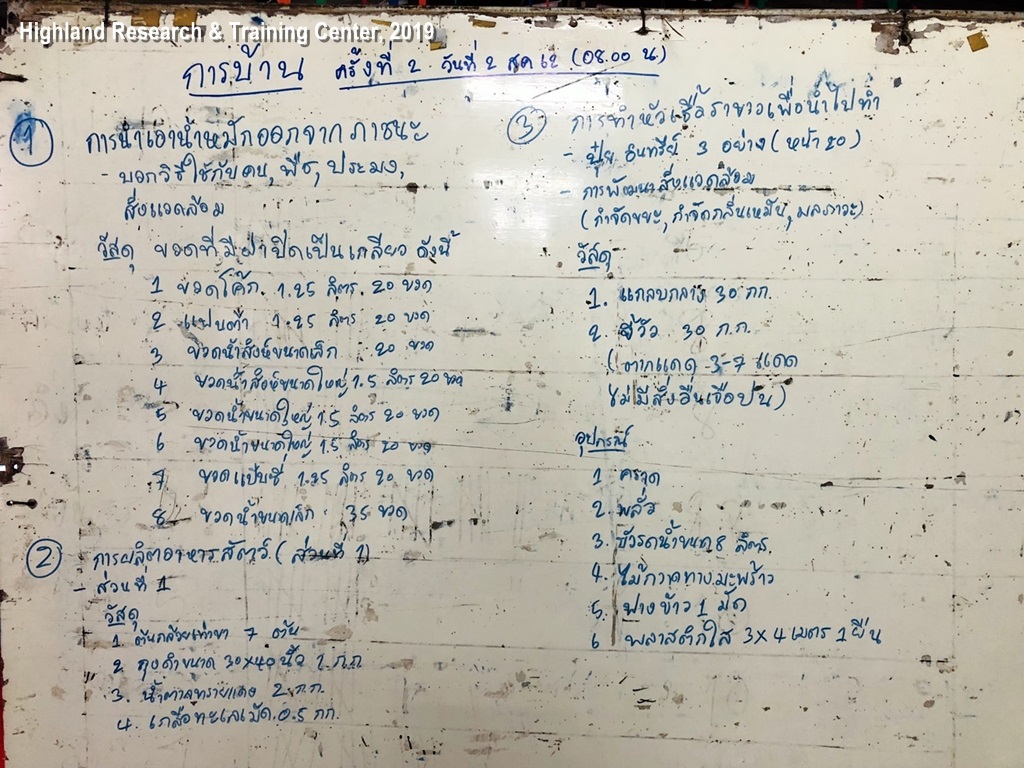 Highland Research & Training Center, 2019
การบ้าน ครั้งที่ 2 วันที่ 2 สค 62 (08.00 น)
① การนำเอาน้ำหมักออกจากภาชนะ
- บอกวิธีใช้กับคน, พืช, ประมง,
สิ่งแวดล้อม
วัสดุ ขวดที่มีฝาปิดเป็นเกลียว ดังนี้
1 ขวดโค๊ก 1.25 ลิตร 20 ขวด
2 แฟนต้า 1.25 ลิตร 20 ขวด
3 ขวดน้ำสิงห์ขนาดเล็ก 20 ขวด
4 ขวดน้ำสิงห์ขนาดใหญ่ 1.5 ลิตร 20 ขวด
5 ขวดน้ำขนาดใหญ่ 1.5 ลิตร 20 ขวด
6 ขวดน้ำขนาดใหญ่ 1.5 ลิตร 20 ขวด
7 ขวดแป๊บซี่ 1.25 ลิตร 20 ขวด
8 ขวดน้ำขนาดเล็ก 35 ขวด
② การผลิตอาหารสัตว์ (ส่วนที่ 1)
- ส่วนที่ 1
วัสดุ
1. ต้นกล้วยเท่าขา 7 ต้น
2 ถุงดำขนาด 30x40 นิ้ว 1 ก.ก
3. น้ำตาลทรายแดง 2 ก.ก.
4. เกลือทะเลเม็ด 0.5 กก.
③ การทำหัวเชื้อราขาวเพื่อนำไปทำ
- ปุ๋ย อินทรีย์ 3 อย่าง (หน้า 20)
- การพัฒนาสิ่งแวดล้อม
(กำจัดขยะ, กำจัดกลิ่นเหม็น, มลภาวะ)
วัสดุ
1. แกลบกลาง 30 กก.
2. ขี้วัว 30 ก.ก.
(ตากแดด 3-7 แดด
ไม่มีสิ่งอื่นเจือปน)
อุปกรณ์
1 คราด
2. พลั่ว
3. บัวรดน้ำขนาด 8 ลิตร
4. ไม้กวาดทางมะพร้าว
5. ฟางข้าว 1 มัด
6 พลาสติกใส 3x4 เมตร 1 ผืน